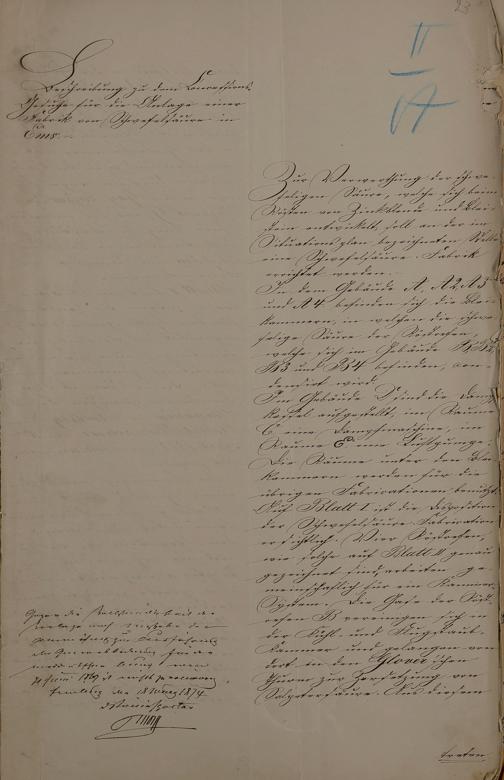 23
II
Beschreibung zu dem Concessions-
Gesuche für die Anlage einer
Fabrik von Schwefelsäure in
Ems.
Zur Verwerthung der schwe-
feligen Säure, welche sich beim
Rösten von Zinkblende und Blei-
stein entwickelt, soll an der im
Situationsplan bezeichneten Stelle
eine Schwefelsäure-Fabrik
errichtet werden.
In dem Gebäude A, A2, A3
und A4 befinden sich die Blei-
kammern, in welchen die schwe-
felige Säure der Röstöfen,
welche sich im Gebäude B, B2
B3 und B4 befinden, con-
densirt wird.
Im Gebäude D sind die Dampf-
kessel aufgestellt, im Raume
C eine Dampfmaschine, im
Raume E eine Luftpumpe.
Die Räume unter den Blei-
kammern werden für die
übrigen Fabricationen benutzt.
Auf Blatt I ist die Disposition
der Schwefelsäure-Fabrication
ersichtlich. Vier Röstöfen,
wie solche auf Blatt II genau
gezeichnet sind, arbeiten ge-
meinschaftlich für ein Kammer-
System. Die Gase der Röst-
öfen B vereinigen sich in
der Kühl- und Flugstaub-
Kammer und gelangen von
dort in den Glover'schen
Thurm zur Zersetzung von
Salpetersäure. Aus diesem
treten
Gegen die Vollständigkeit der
Vorlage nach